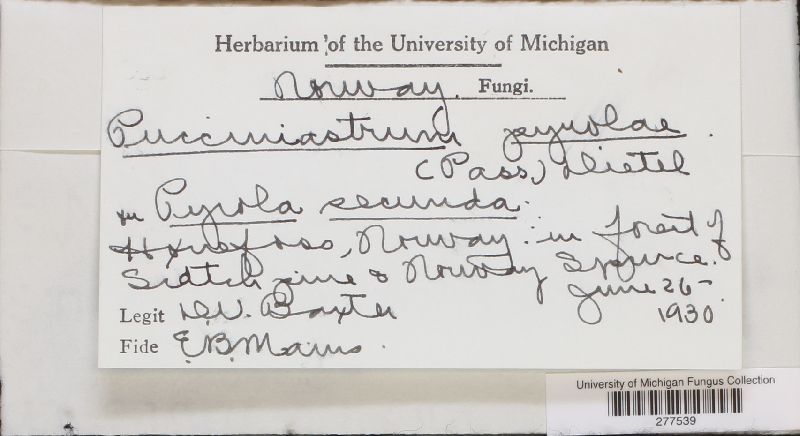 Herbarium of the University of Michigan
Norway. Fungi.
Pucciniastrum pyrolae.
(Pass.) Dietel
on Pyrola secunda.
Norway. in forest of
Scotch pine & Norway Spruce.
June 26-
Legit D.V. Baxter
1930.
Fide E.B. Mains.
University of Michigan Fungus Collection
277539